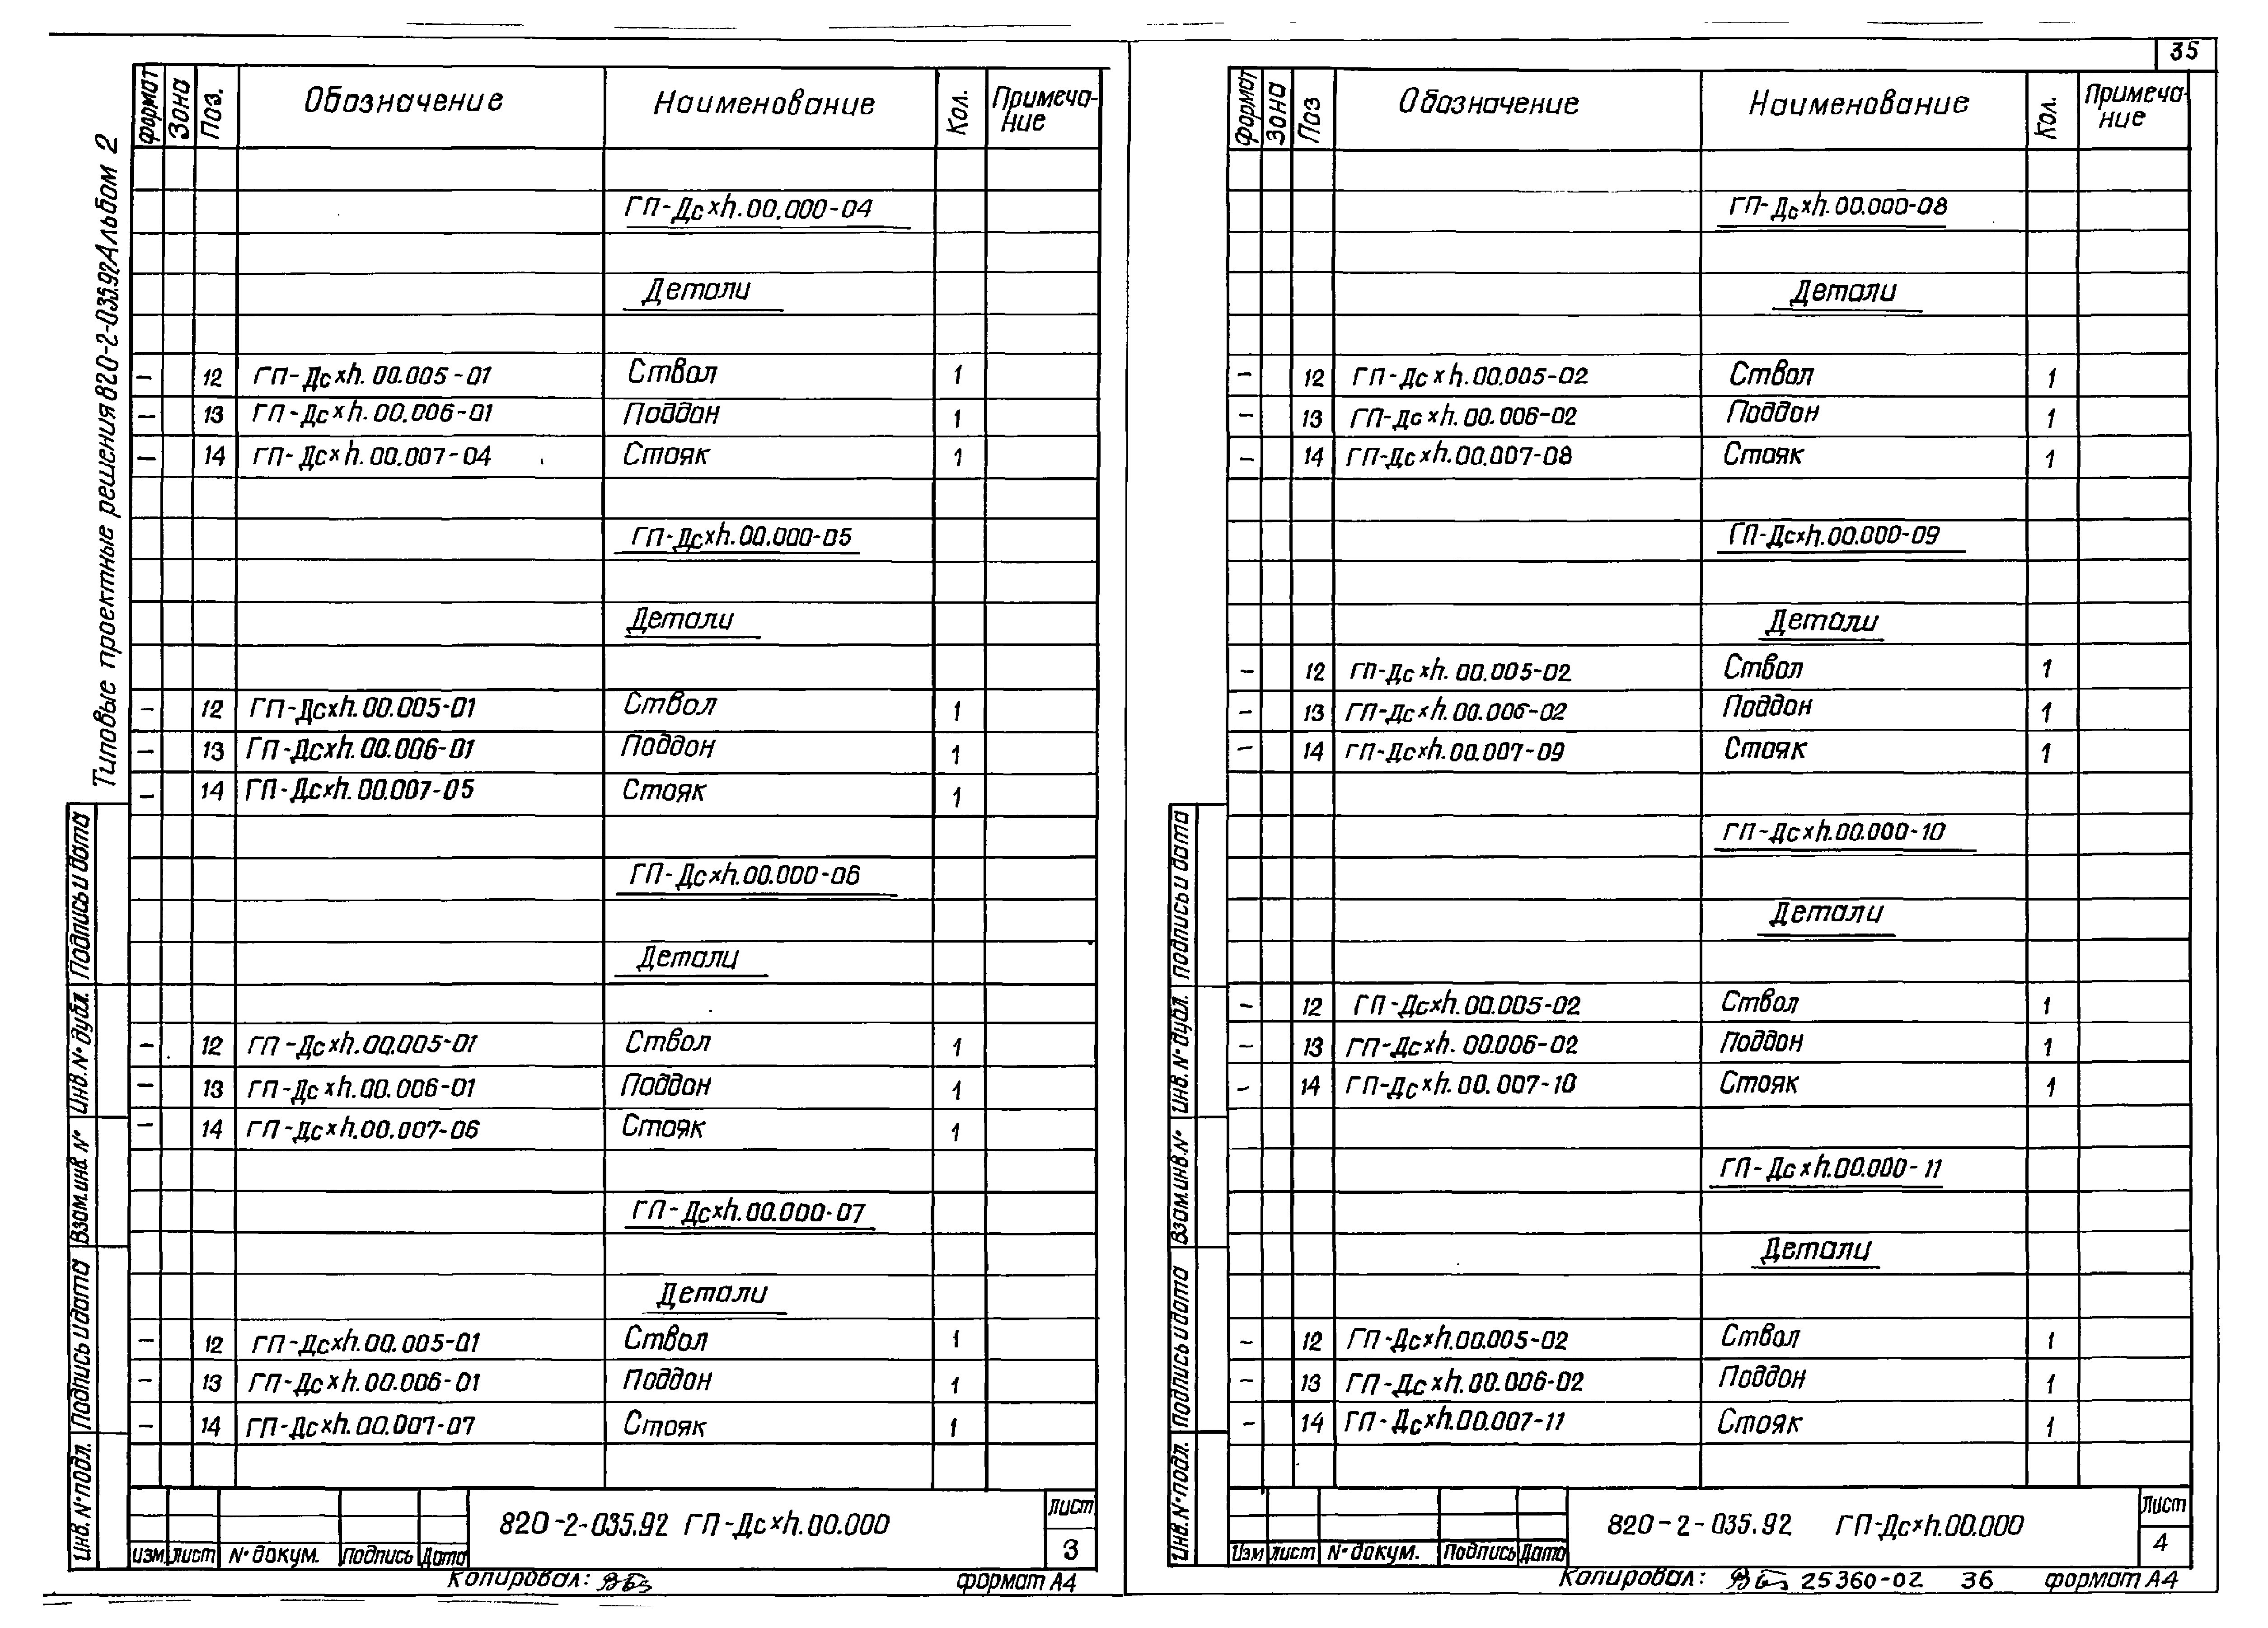 35
Типовые проектные решения 820-2-035.92 Альбом 2
формат Зона Поз. Обозначение Наименование Кол. Примеча-
ние
ГП-Дсxh.00.000-04
Детали
– 12 ГП-Дсxh.00.005-01 Ствол 1
– 13 ГП-Дсxh.00.006-01 Поддон 1
– 14 ГП-Дсxh.00.007-04 Стояк 1
ГП-Дсxh.00.000-05
Детали
– 12 ГП-Дсxh.00.005-01 Ствол 1
– 13 ГП-Дсxh.00.006-01 Поддон 1
– 14 ГП-Дсxh.00.007-05 Стояк 1
ГП-Дсxh.00.000-06
Детали
– 12 ГП-Дсxh.00.005-01 Ствол 1
– 13 ГП-Дсxh.00.006-01 Поддон 1
– 14 ГП-Дсxh.00.007-06 Стояк 1
ГП-Дсxh.00.000-07
Детали
– 12 ГП-Дсxh.00.005-01 Ствол 1
– 13 ГП-Дсxh.00.006-01 Поддон 1
– 14 ГП-Дсxh.00.007-07 Стояк 1
Подпись и дата
Инв. № дубл.
Взам. инв. №
Подпись и дата
Инв. № подл.
820-2-035.92 ГП-Дсxh.00.000
Лист
3
Изм Лист № докум. Подпись Дата
Копировал: формат А4
формат Зона Поз Обозначение Наименование Кол. Примеча-
ние
ГП-Дсxh.00.000-08
Детали
– 12 ГП-Дсxh.00.005-02 Ствол 1
– 13 ГП-Дсxh.00.006-02 Поддон 1
– 14 ГП-Дсxh.00.007-08 Стояк 1
ГП-Дсxh.00.000-09
Детали
– 12 ГП-Дсxh.00.005-02 Ствол 1
– 13 ГП-Дсxh.00.006-02 Поддон 1
– 14 ГП-Дсxh.00.007-09 Стояк 1
ГП-Дсxh.00.000-10
Детали
– 12 ГП-Дсxh.00.005-02 Ствол 1
– 13 ГП-Дсxh.00.006-02 Поддон 1
– 14 ГП-Дсxh.00.007-10 Стояк 1
ГП-Дсxh.00.000-11
Детали
– 12 ГП-Дсxh.00.005-02 Ствол 1
– 13 ГП-Дсxh.00.006-02 Поддон 1
– 14 ГП-Дсxh.00.007-11 Стояк 1
подпись и дата
Инв. № дубл.
Взам.инв.№
Подпись и дата
Инв. № подл.
820-2-035.92 ГП-Дсxh.00.000
Лист
4
Изм Лист № докум. Подпись Дата
Копировал: 25360-02 36 формат А4